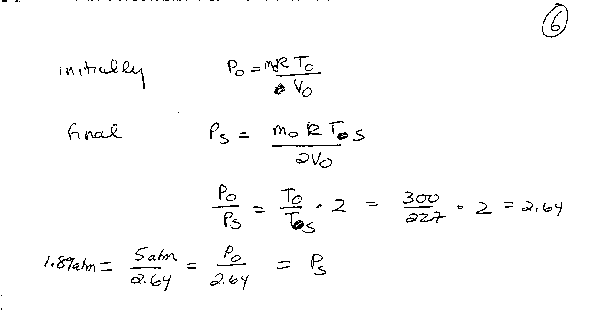 6
initially P₀ = m₀R T₀ / V₀
final P_S = m₀ R T_S / 2V₀
P₀ / P_S = T₀ / T_S · 2 = 300 / 227 · 2 = 2.64
1.89atm = 5atm / 2.64 = P₀ / 2.64 = P_S